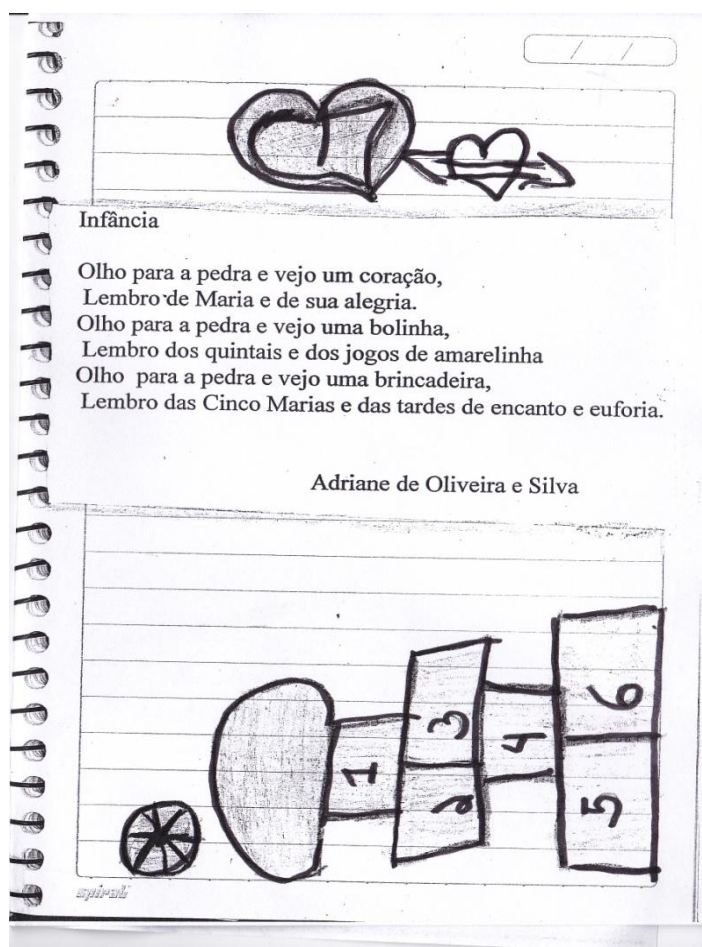 / /
Infância
Olho para a pedra e vejo um coração,
Lembro de Maria e de sua alegria.
Olho para a pedra e vejo uma bolinha,
Lembro dos quintais e dos jogos de amarelinha
Olho para a pedra e vejo uma brincadeira,
Lembro das Cinco Marias e das tardes de encanto e euforia.
Adriane de Oliveira e Silva
1
2 3
4
5 6
spiral